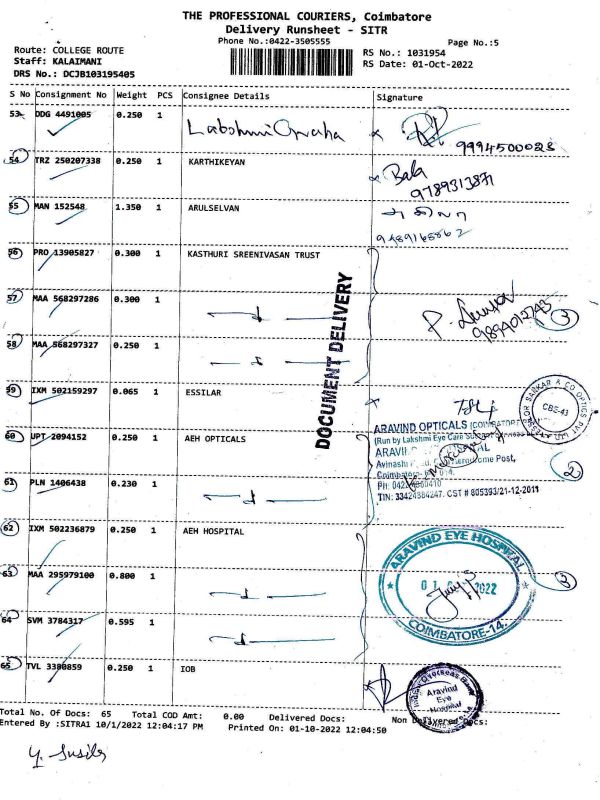 THE PROFESSIONAL COURIERS, Coimbatore
Delivery Runsheet - SITR
Phone No.:0422-3505555
Page No.:5
Route: COLLEGE ROUTE
Staff: KALAIMANI
DRS No.: DCJB103195405
RS No.: 1031954
RS Date: 01-Oct-2022
S No Consignment No Weight PCS Consignee Details Signature
53 DDG 4491005 0.250 1
9994500028
54 TRZ 250207338 0.250 1 KARTHIKEYAN Bala
9789313871
55 MAN 152548 1.350 1 ARULSELVAN
9489168862
56 PRO 13905827 0.300 1 KASTHURI SREENIVASAN TRUST
57 MAA 568297286 0.300 1
9894012743
3
58 MAA 568297327 0.250 1
DOCUMENT DELIVERY
59 IXM 502159297 0.065 1 ESSILAR
CBE-43
60 UPT 2094152 0.250 1 AEH OPTICALS
ARAVIND OPTICALS
(Run by Lakshmi Eye Care
Avinashi
Post,
TIN: 33424384247. CST # 805393/21-12-2011
2
61 PLN 1406438 0.230 1
62 IXM 502236879 0.250 1 AEH HOSPITAL
ARAVIND EYE HOSPITAL
2022
COIMBATORE-14.
63 MAA 295979100 0.800 1
3
64 SVM 3784317 0.595 1
65 TVL 3380859 0.250 1 IOB
Indian Overseas Bank
Aravind
Eye
Hospital
Total No. Of Docs: 65 Total COD Amt: 0.00 Delivered Docs: Non Delivered Docs:
Entered By :SITRA1 10/1/2022 12:04:17 PM Printed On: 01-10-2022 12:04:50